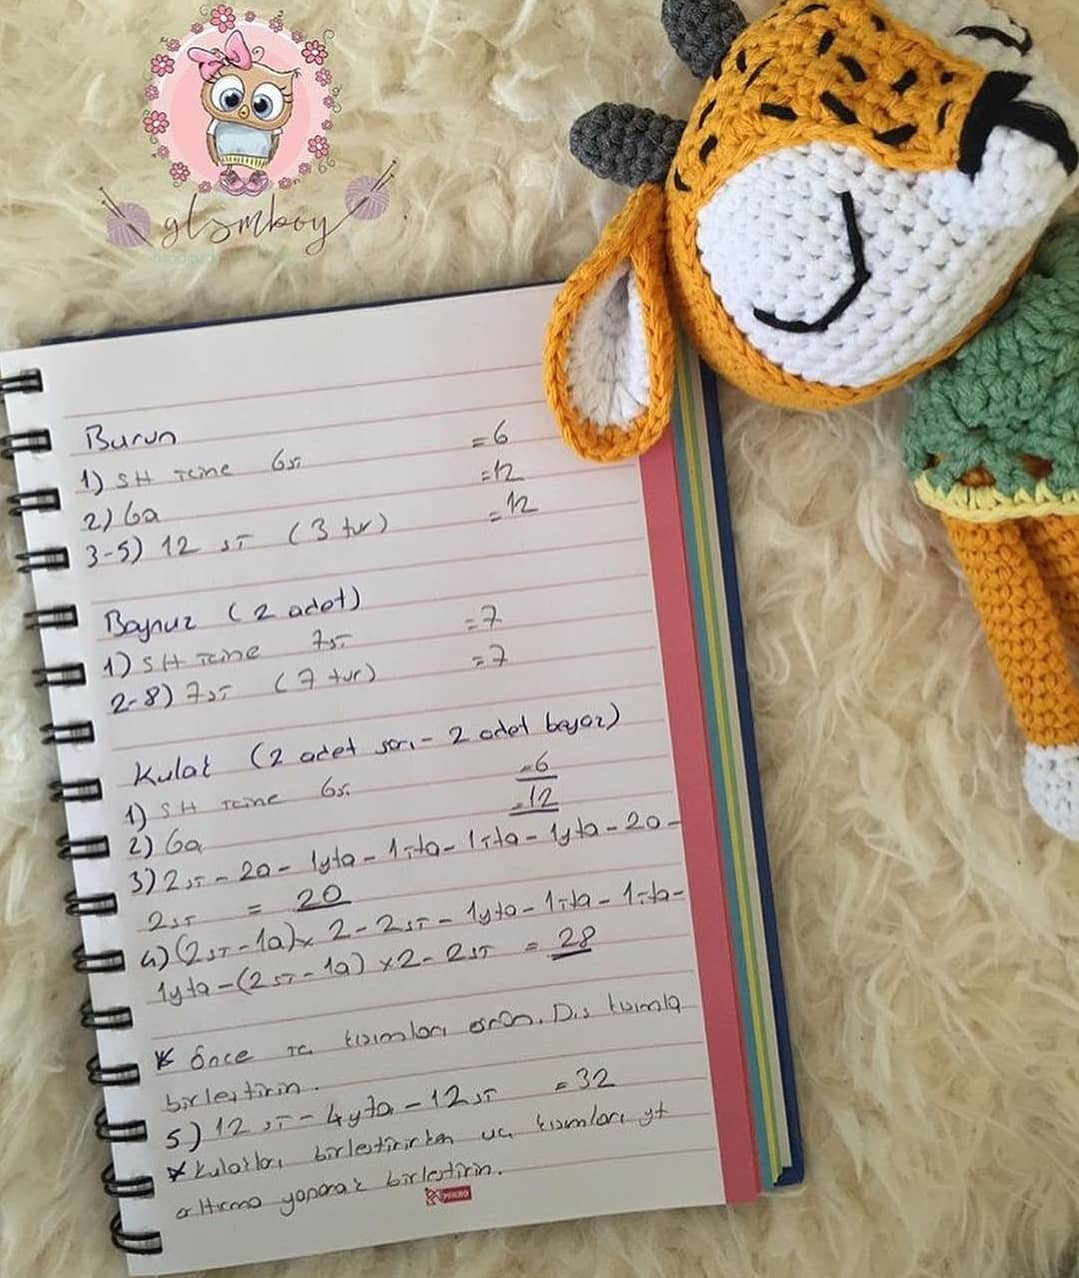 glsmboy
Burun
1) SH içine 6sı =6
2) 6a =12
3-5) 12 sı (3 tur) =12
Boynuz (2 adet)
1) SH içine 7sı =7
2-8) 7sı (7 tur) =7
Kulak (2 adet sarı - 2 adet beyaz)
1) SH içine 6sı =6
2) 6a =12
3) 2sı - 2a - 1yta - 1ita - 1ita - 1yta - 2a -
2sı = 20
4) (2sı - 1a) x 2 - 2sı - 1yta - 1ita - 1ita -
1yta - (2sı - 1a) x 2 - 2sı = 28
* Önce iç kısımları örün. Dış kısımla
birleştirin.
5) 12 sı - 4yta - 12sı = 32
* Kulakları birleştirirken uç kısımları yt
arttırma yaparak birleştirin.
MIKRO